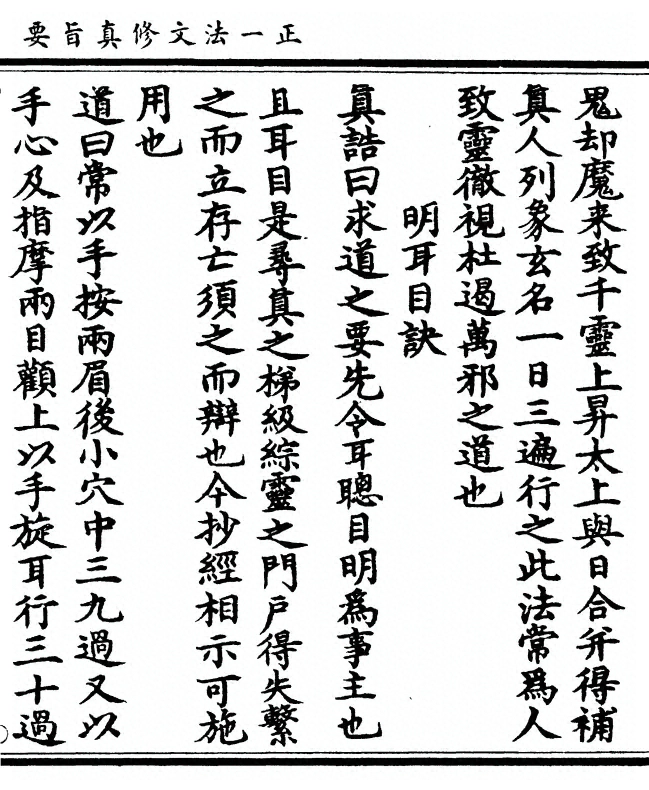 正一法文修真旨要
鬼却魔来致千靈上昇太上與日合并得補
真人列象玄名一日三遍行之此法常爲人
致靈徹視杜遏萬邪之道也
明耳目訣
真誥曰求道之要先令耳聰目明爲事主也
且耳目是尋真之梯級綜靈之門戶得失繫
之而立存亡須之而辯也今抄經相示可施
用也
道曰常以手按兩眉後小穴中三九過又以
手心及指摩兩目顴上以手旋耳行三十過